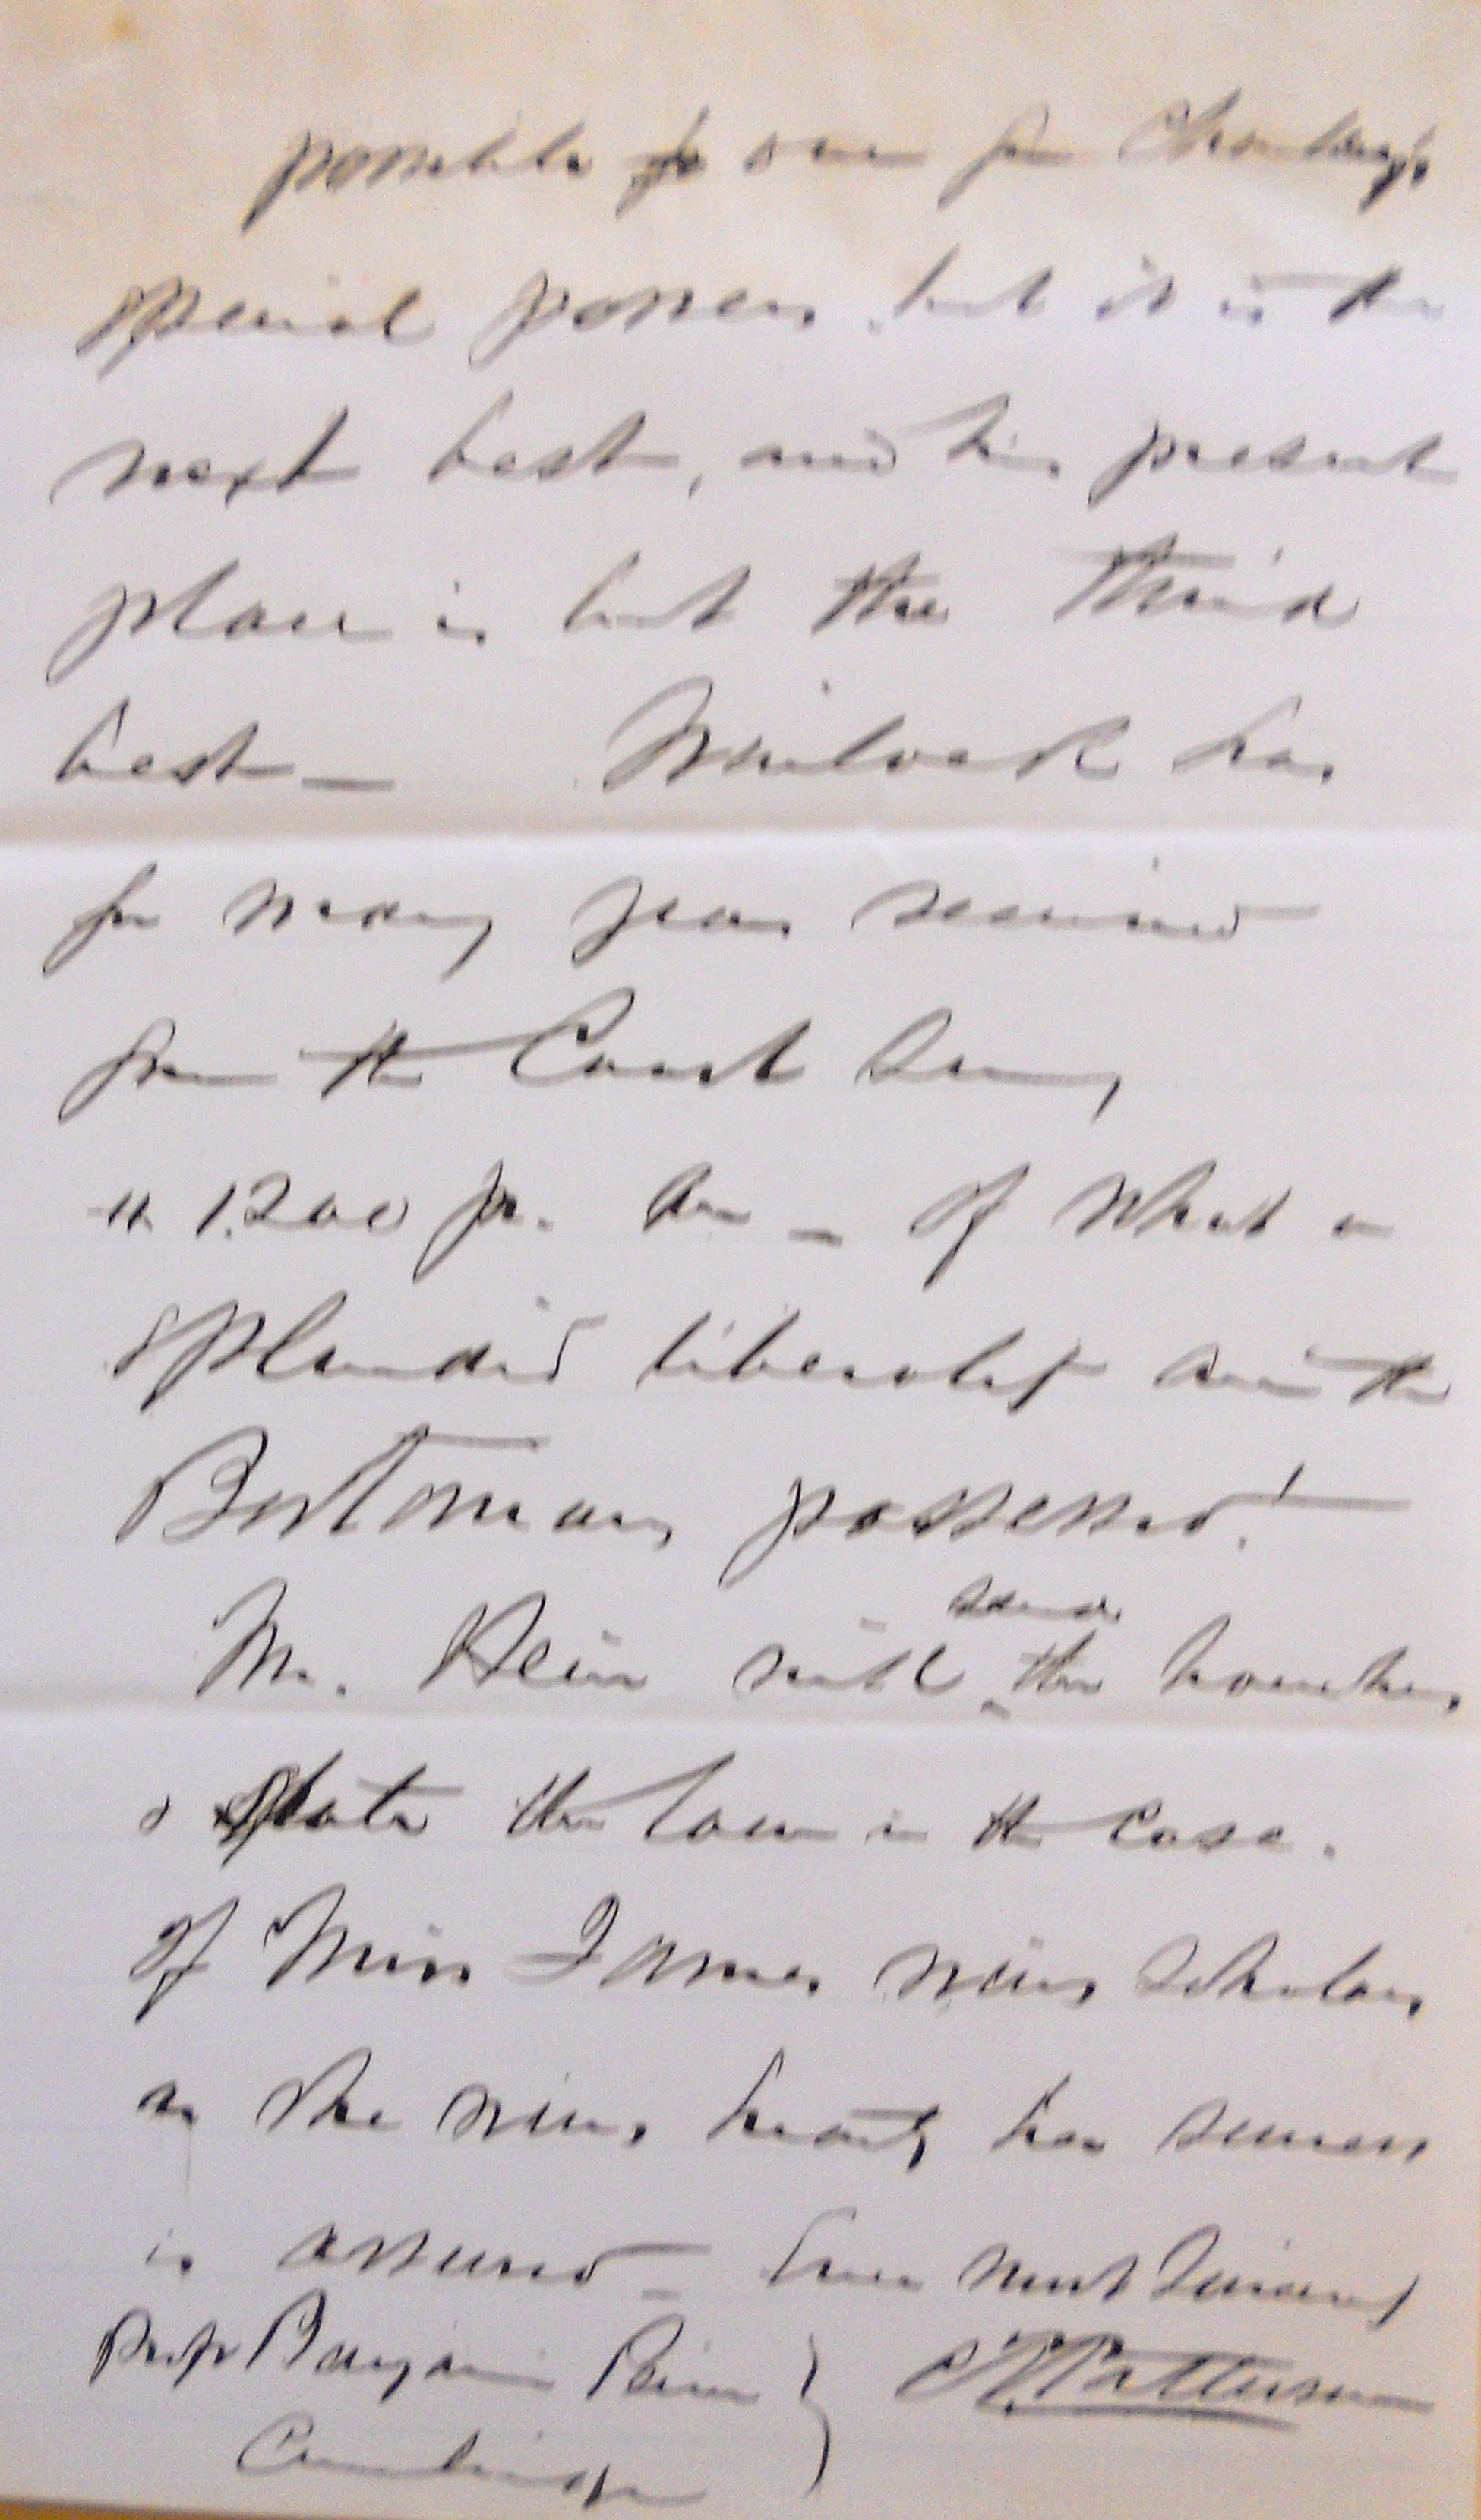 possible one for Charley's
special powers, but it is the
next best, and his present
place is but the third
best — Winlock has
for many years received
from the Coast Survey
1200 pr. an — Of what a
splendid liberality are the
Bostonians possessed!
Mr. Hein will send the vouchers
& state the law in the case.
Of Miss James' nine scholars
as she wins hearts her success
is assured — Ever most sincerely
Profr Benjamin Peirce } C. P. Patterson
Cambridge